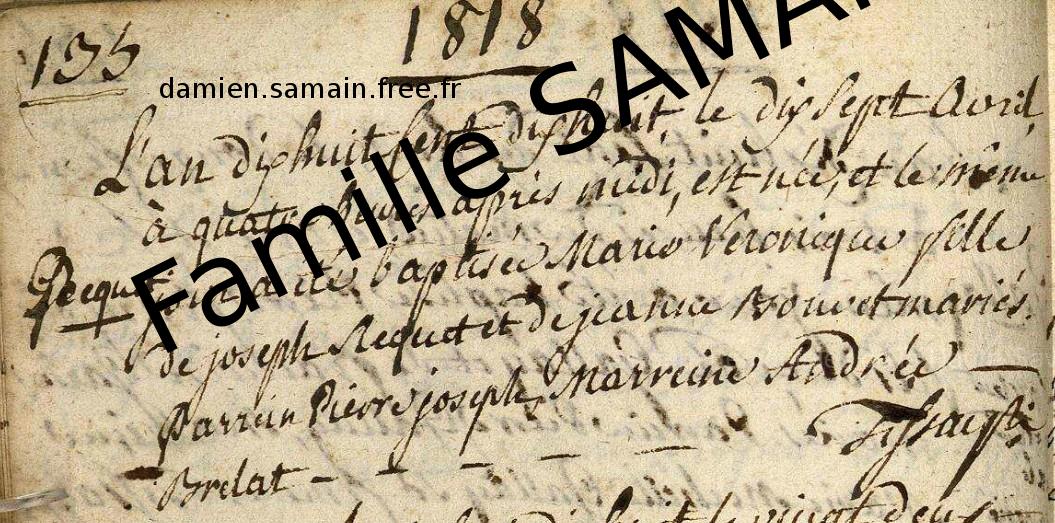 135
1818
damien.samain.free.fr
Famille SAMA
L'an dixhuit Cent dix huit, le dix Sept Avril
à quatre heures après midi, est née, et le même
Requet
jour a été baptisée Marie Veronique fille
de joseph Requet et de jeanne Bouvet mariés.
Parrein Pierre joseph, Marreine Andrée
Brelat